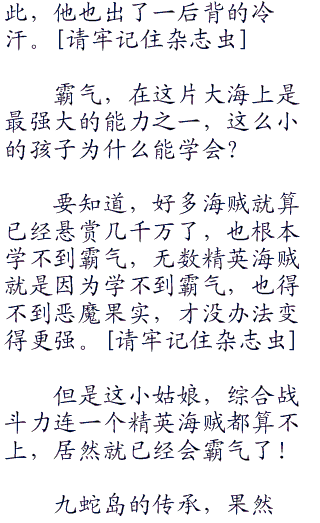 此，他也出了一后背的冷
汗。[请牢记住杂志虫]
霸气，在这片大海上是
最强大的能力之一，这么小
的孩子为什么能学会？
要知道，好多海贼就算
已经悬赏几千万了，也根本
学不到霸气，无数精英海贼
就是因为学不到霸气，也得
不到恶魔果实，才没办法变
得更强。[请牢记住杂志虫]
但是这小姑娘，综合战
斗力连一个精英海贼都算不
上，居然就已经会霸气了！
九蛇岛的传承，果然